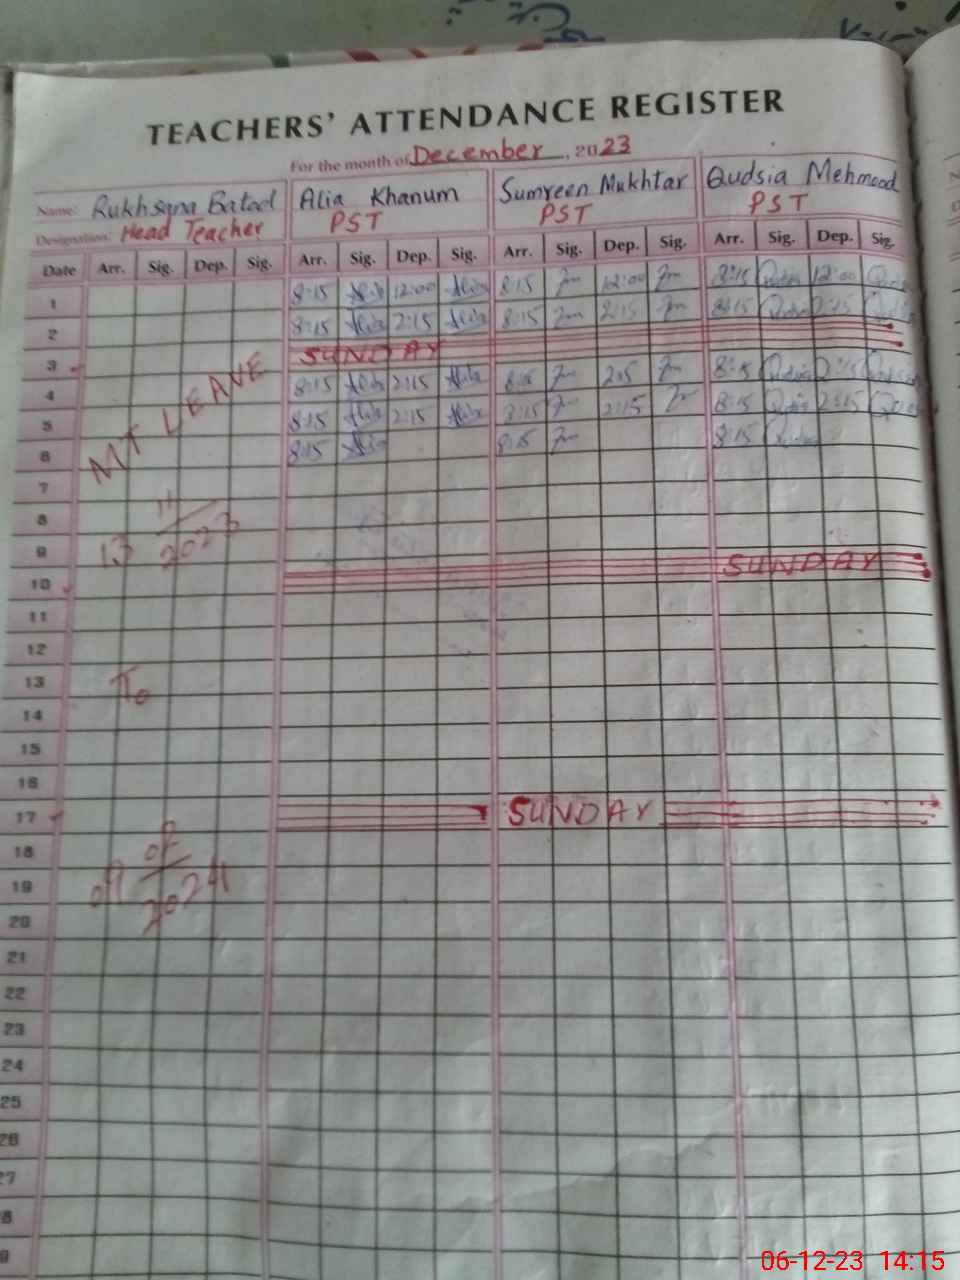 TEACHERS' ATTENDANCE REGISTER
For the month of December, 2023
Name: Rukhsana Batool Alia Khanum Sumreen Mukhtar Qudsia Mehmood
Designation: Head Teacher PST PST PST
Date Arr. Sig. Dep. Sig. Arr. Sig. Dep. Sig. Arr. Sig. Dep. Sig. Arr. Sig. Dep. Sig.
1 8:15 Alia 12:00 Alia 8:15 12:00 8:15 Qudsia 12:00 Qudsia
2 8:15 Alia 2:15 Alia 8:15 2:15 8:15 Qudsia 2:15 Qudsia
3 SUNDAY
4 8:15 Alia 2:15 Alia 8:15 2:15 8:15 Qudsia 2:15 Qudsia
5 8:15 Alia 2:15 Alia 8:15 2:15 8:15 Qudsia 2:15 Qudsia
6 8:15 Alia 8:15 8:15 Qudsia
MT LEAVE
7
8
9
13 11/2023
10 SUNDAY
11
12
13
To
14
15
16
17 SUNDAY
18
19
09 02/2024
20
21
22
23
24
25
26
27
8
9
06-12-23 14:15